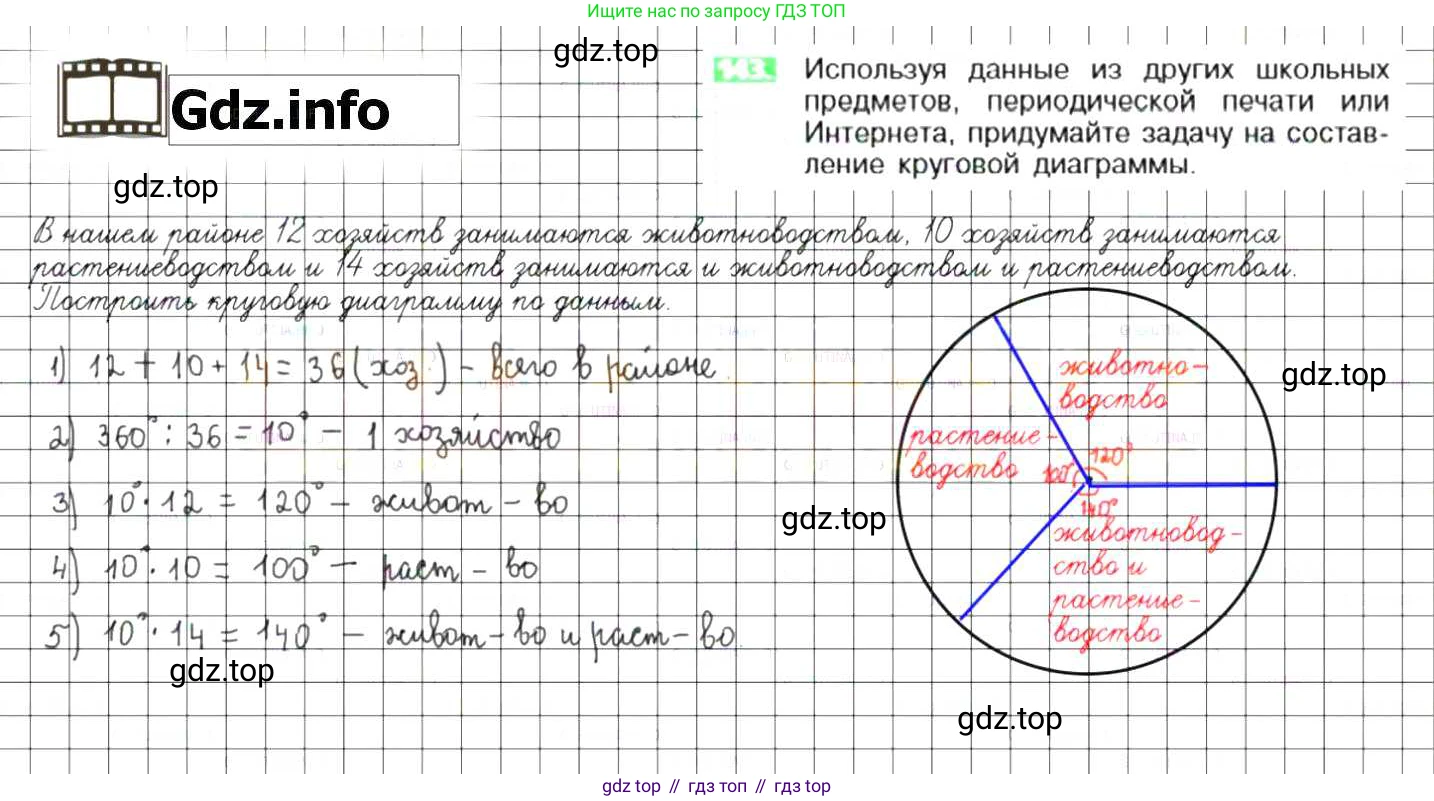 Ищите нас по запросу ГДЗ ТОП
gdz.top
Gdz.info
143.
Используя данные из других школьных
предметов, периодической печати или
Интернета, придумайте задачу на состав-
ление круговой диаграммы.
gdz.top
В нашем районе 12 хозяйств занимаются животноводством, 10 хозяйств занимаются
растениеводством и 14 хозяйств занимаются и животноводством и растениеводством.
Построить круговую диаграмму по данным.
1) 12 + 10 + 14 = 36 (хоз.) - всего в районе.
2) 360° : 36 = 10° - 1 хозяйство
3) 10° · 12 = 120° - живот - во
4) 10° · 10 = 100° - раст - во
5) 10° · 14 = 140° - живот - во и раст - во.
животно-
водство
gdz.top
растение-
водство
100°
120°
140°
gdz.top
животновод-
ство и
растение-
водство
gdz.top
gdz.top
gdz top // гдз топ // gdz top